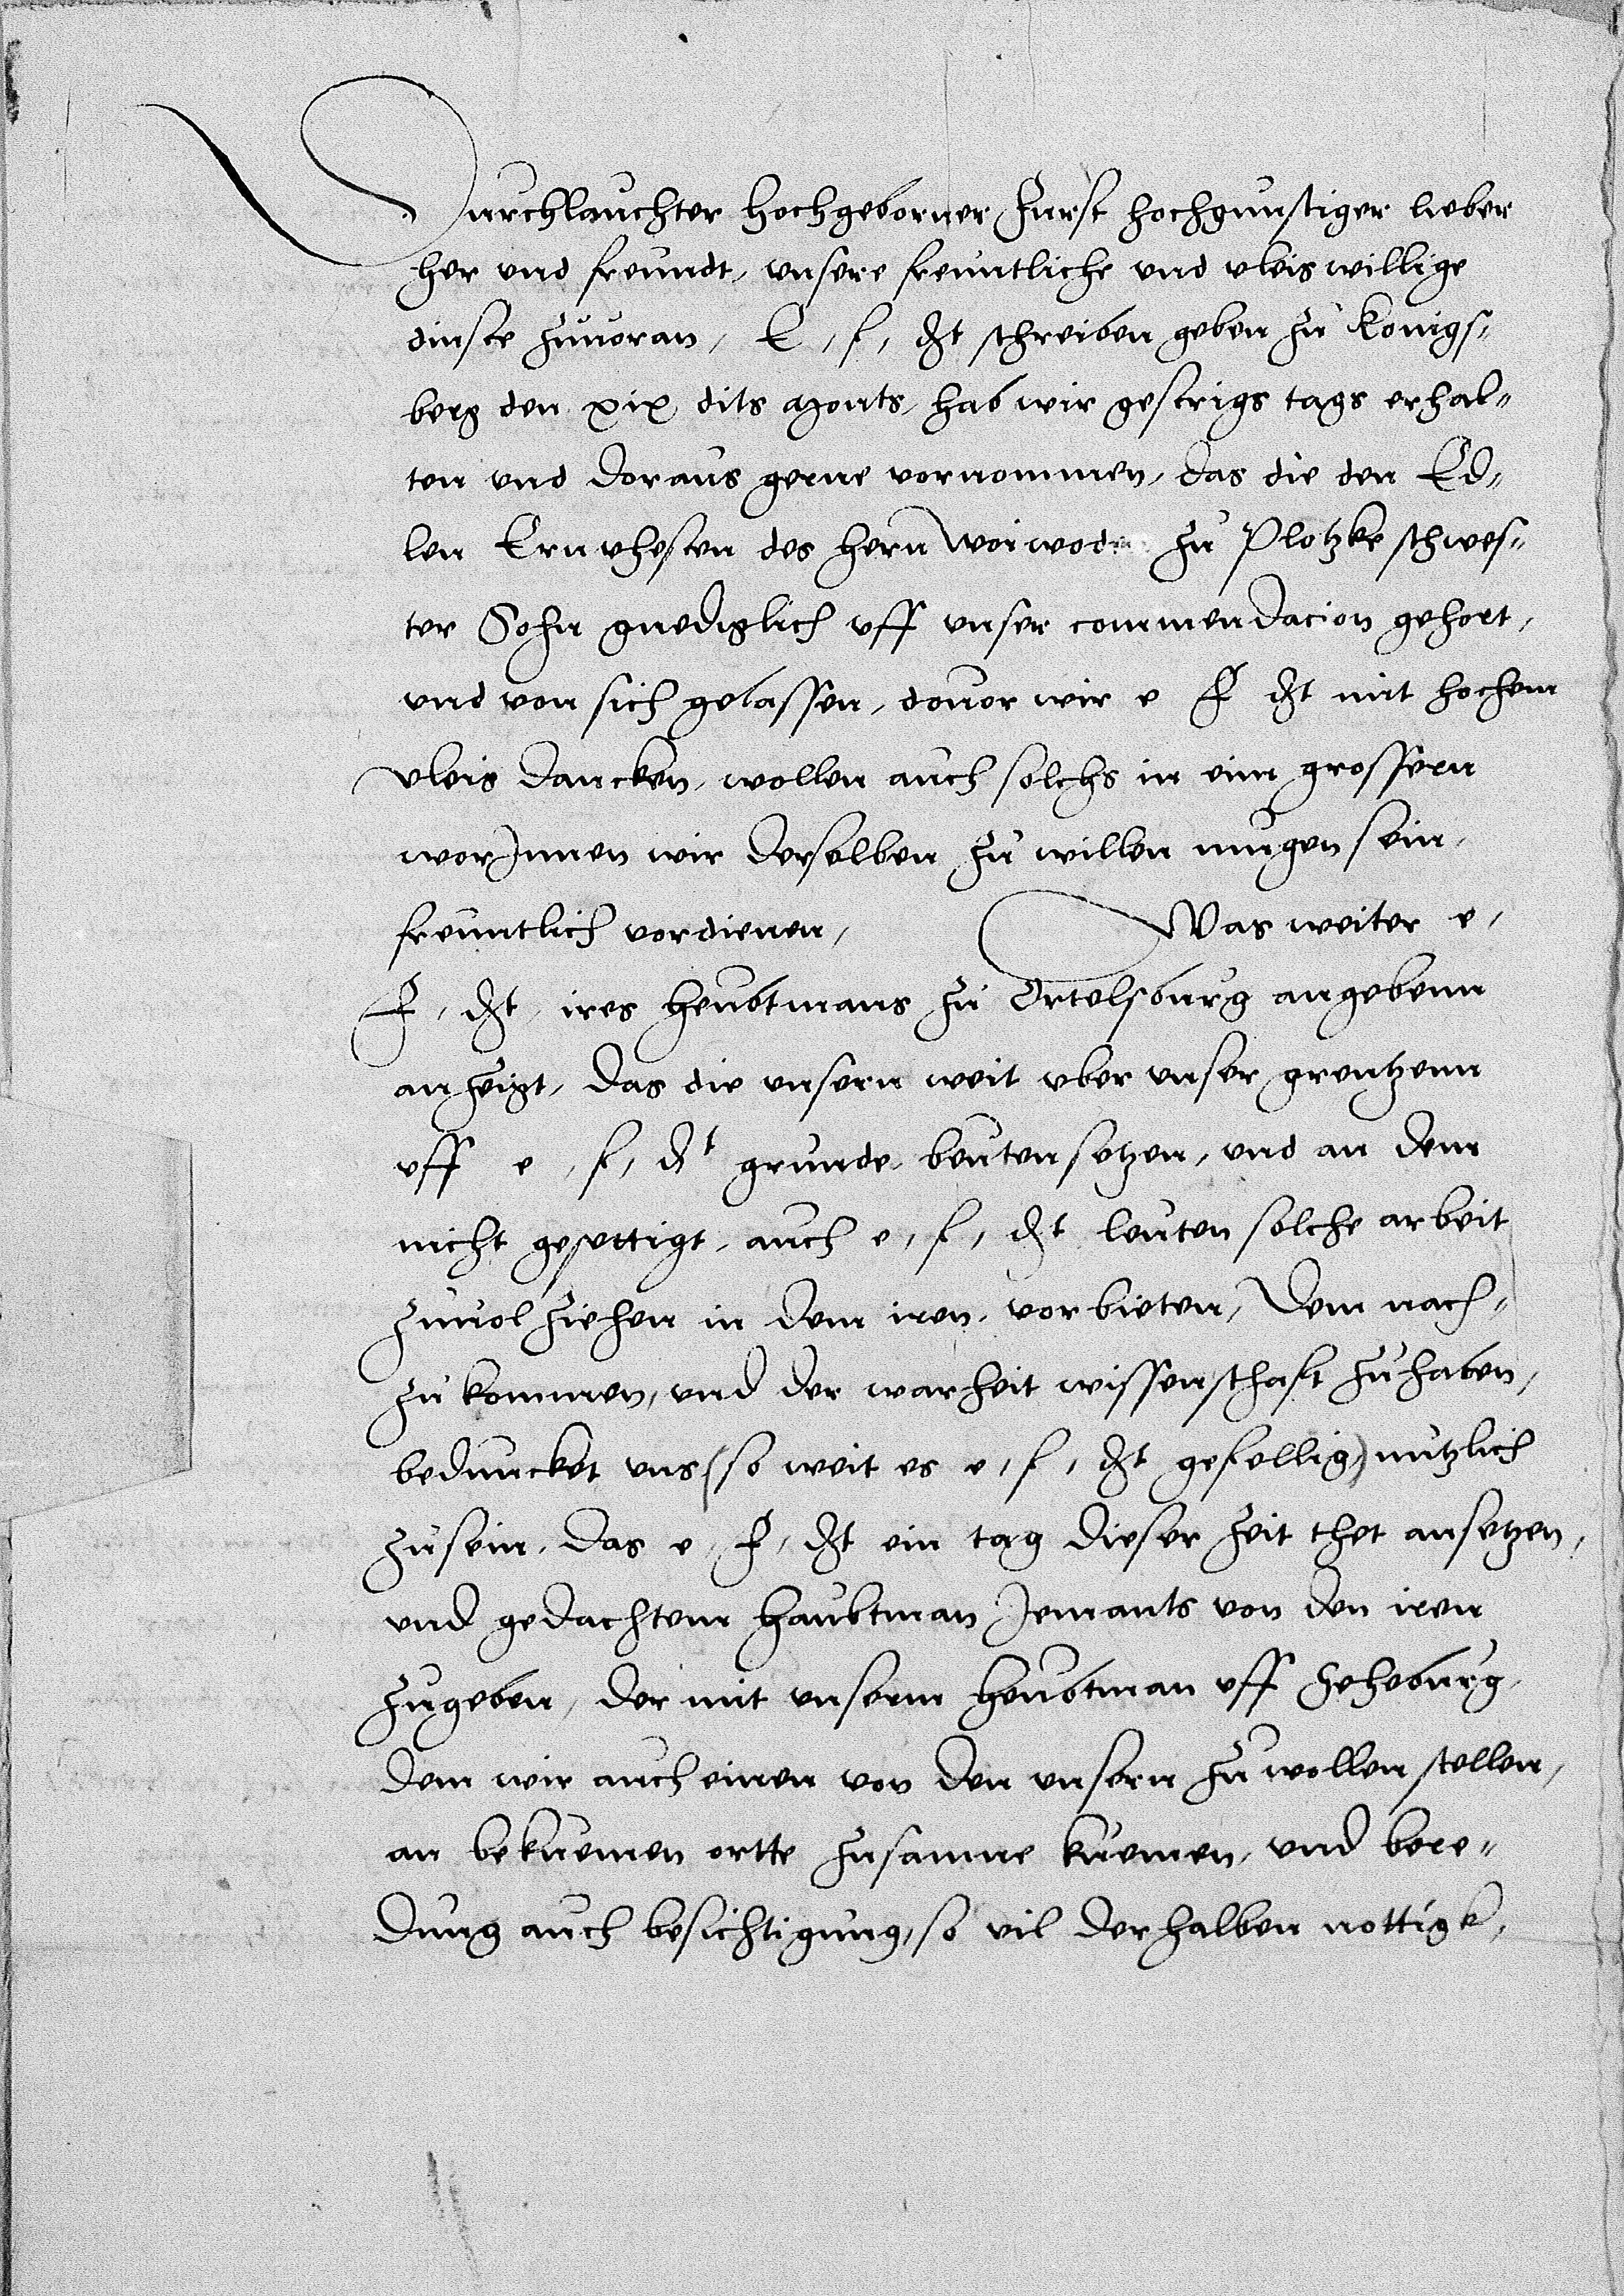 Durchlauchter hochgeborner Furst hochgunstiger lieber
her vnd freundt, vnsere freuntliche vnd vleiswillige
dinste zuuoran, E, f, dt schreiben geben zu Konigs„
berg den xix dits monts, hab wir gestrigs tags erhal„
ten vnd doraus gerne vornommen, das die den Ed„
len Ernvhesten des hern woiwoden zu Plotzke schwes„
ter Sohn gnediglich vff vnser commendacion gehort,
vnd von sich gelassen, douor wir e f dt mit hochem
vleis dancken, wollen auch solchs in eim grossern
worJnnen wir derselben zu willen mugen sein,
freuntlich vordienen, Was weiter e,
f, dt, ires heubtmans zu Ortelsburg angebenn
anzeigt, das die vnsern weit vber vnser grentzenn
vff e, f, dt grunde, beuten setzen, vnd an dem
nicht gesettigt, auch e, f, dt leuten solche arbeit
zuuolziehen in dem iren, vorbieten, Dem nach„
zukommen, vnd der warheit wissenschaft zuhaben,
beduncket vns (so weit es e, f, dt gefellig) nutzlich
zusein, das e, f, dt ein tag dieser zeit thet ansetzen,
vnd gedachtem haubtman Jemants von den iren
zugeben, der mit vnserm heubtman vff Seheburg,
dem wir auch einen von den vnsern zu wollen stellen,
an bekuemen ortte zusamne kuemen, vnd bere„
dung auch besichtigung, so vil derhalben nottigk,